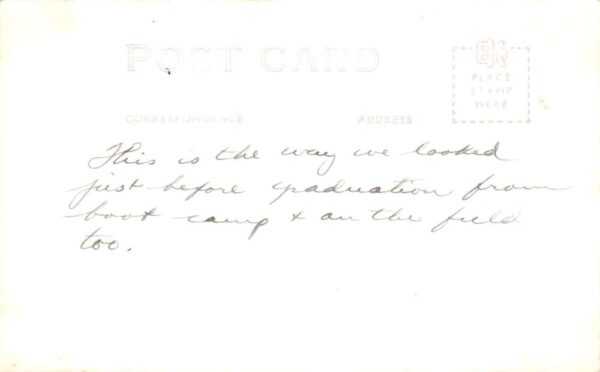 POST CARD
PLACE
STAMP
HERE
CORRESPONDENCE
ADDRESS
This is the way we looked
just before graduation from
boot camp & on the field
too.